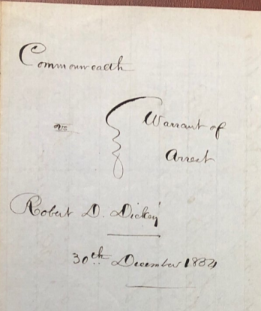 Commonwealth
vs
Warrant of
Arrest
Robert D. Dickey
30th December 1884